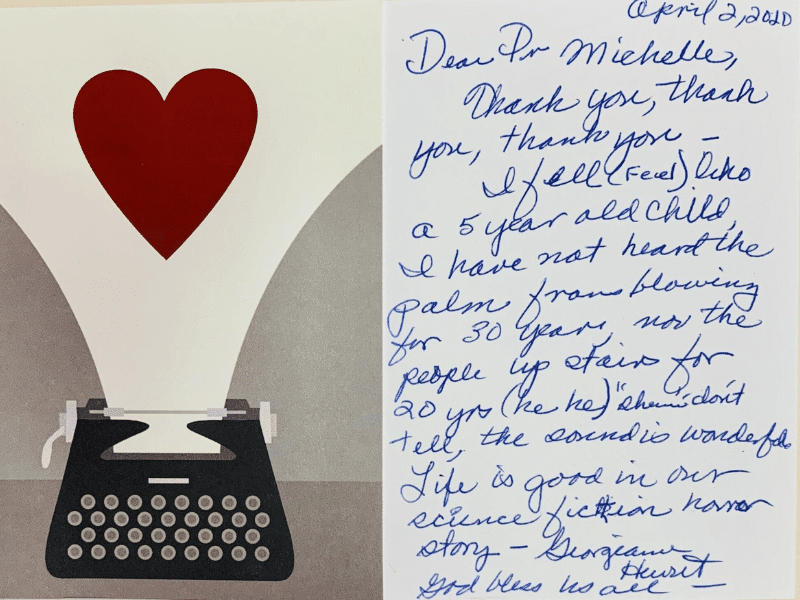 April 2, 2020
Dear Dr Michelle,
Thank you, thank
you, thank you –
I fell (Feel) like
a 5 year old child,
I have not heard the
palm frans blowing
for 30 years, nor the
people up stairs for
20 yrs (he he) "shhh" don't
tell, the sound is wonderful
Life is good in our
science fiction horror
story – Georgeanne
Hewet
God bless us all –